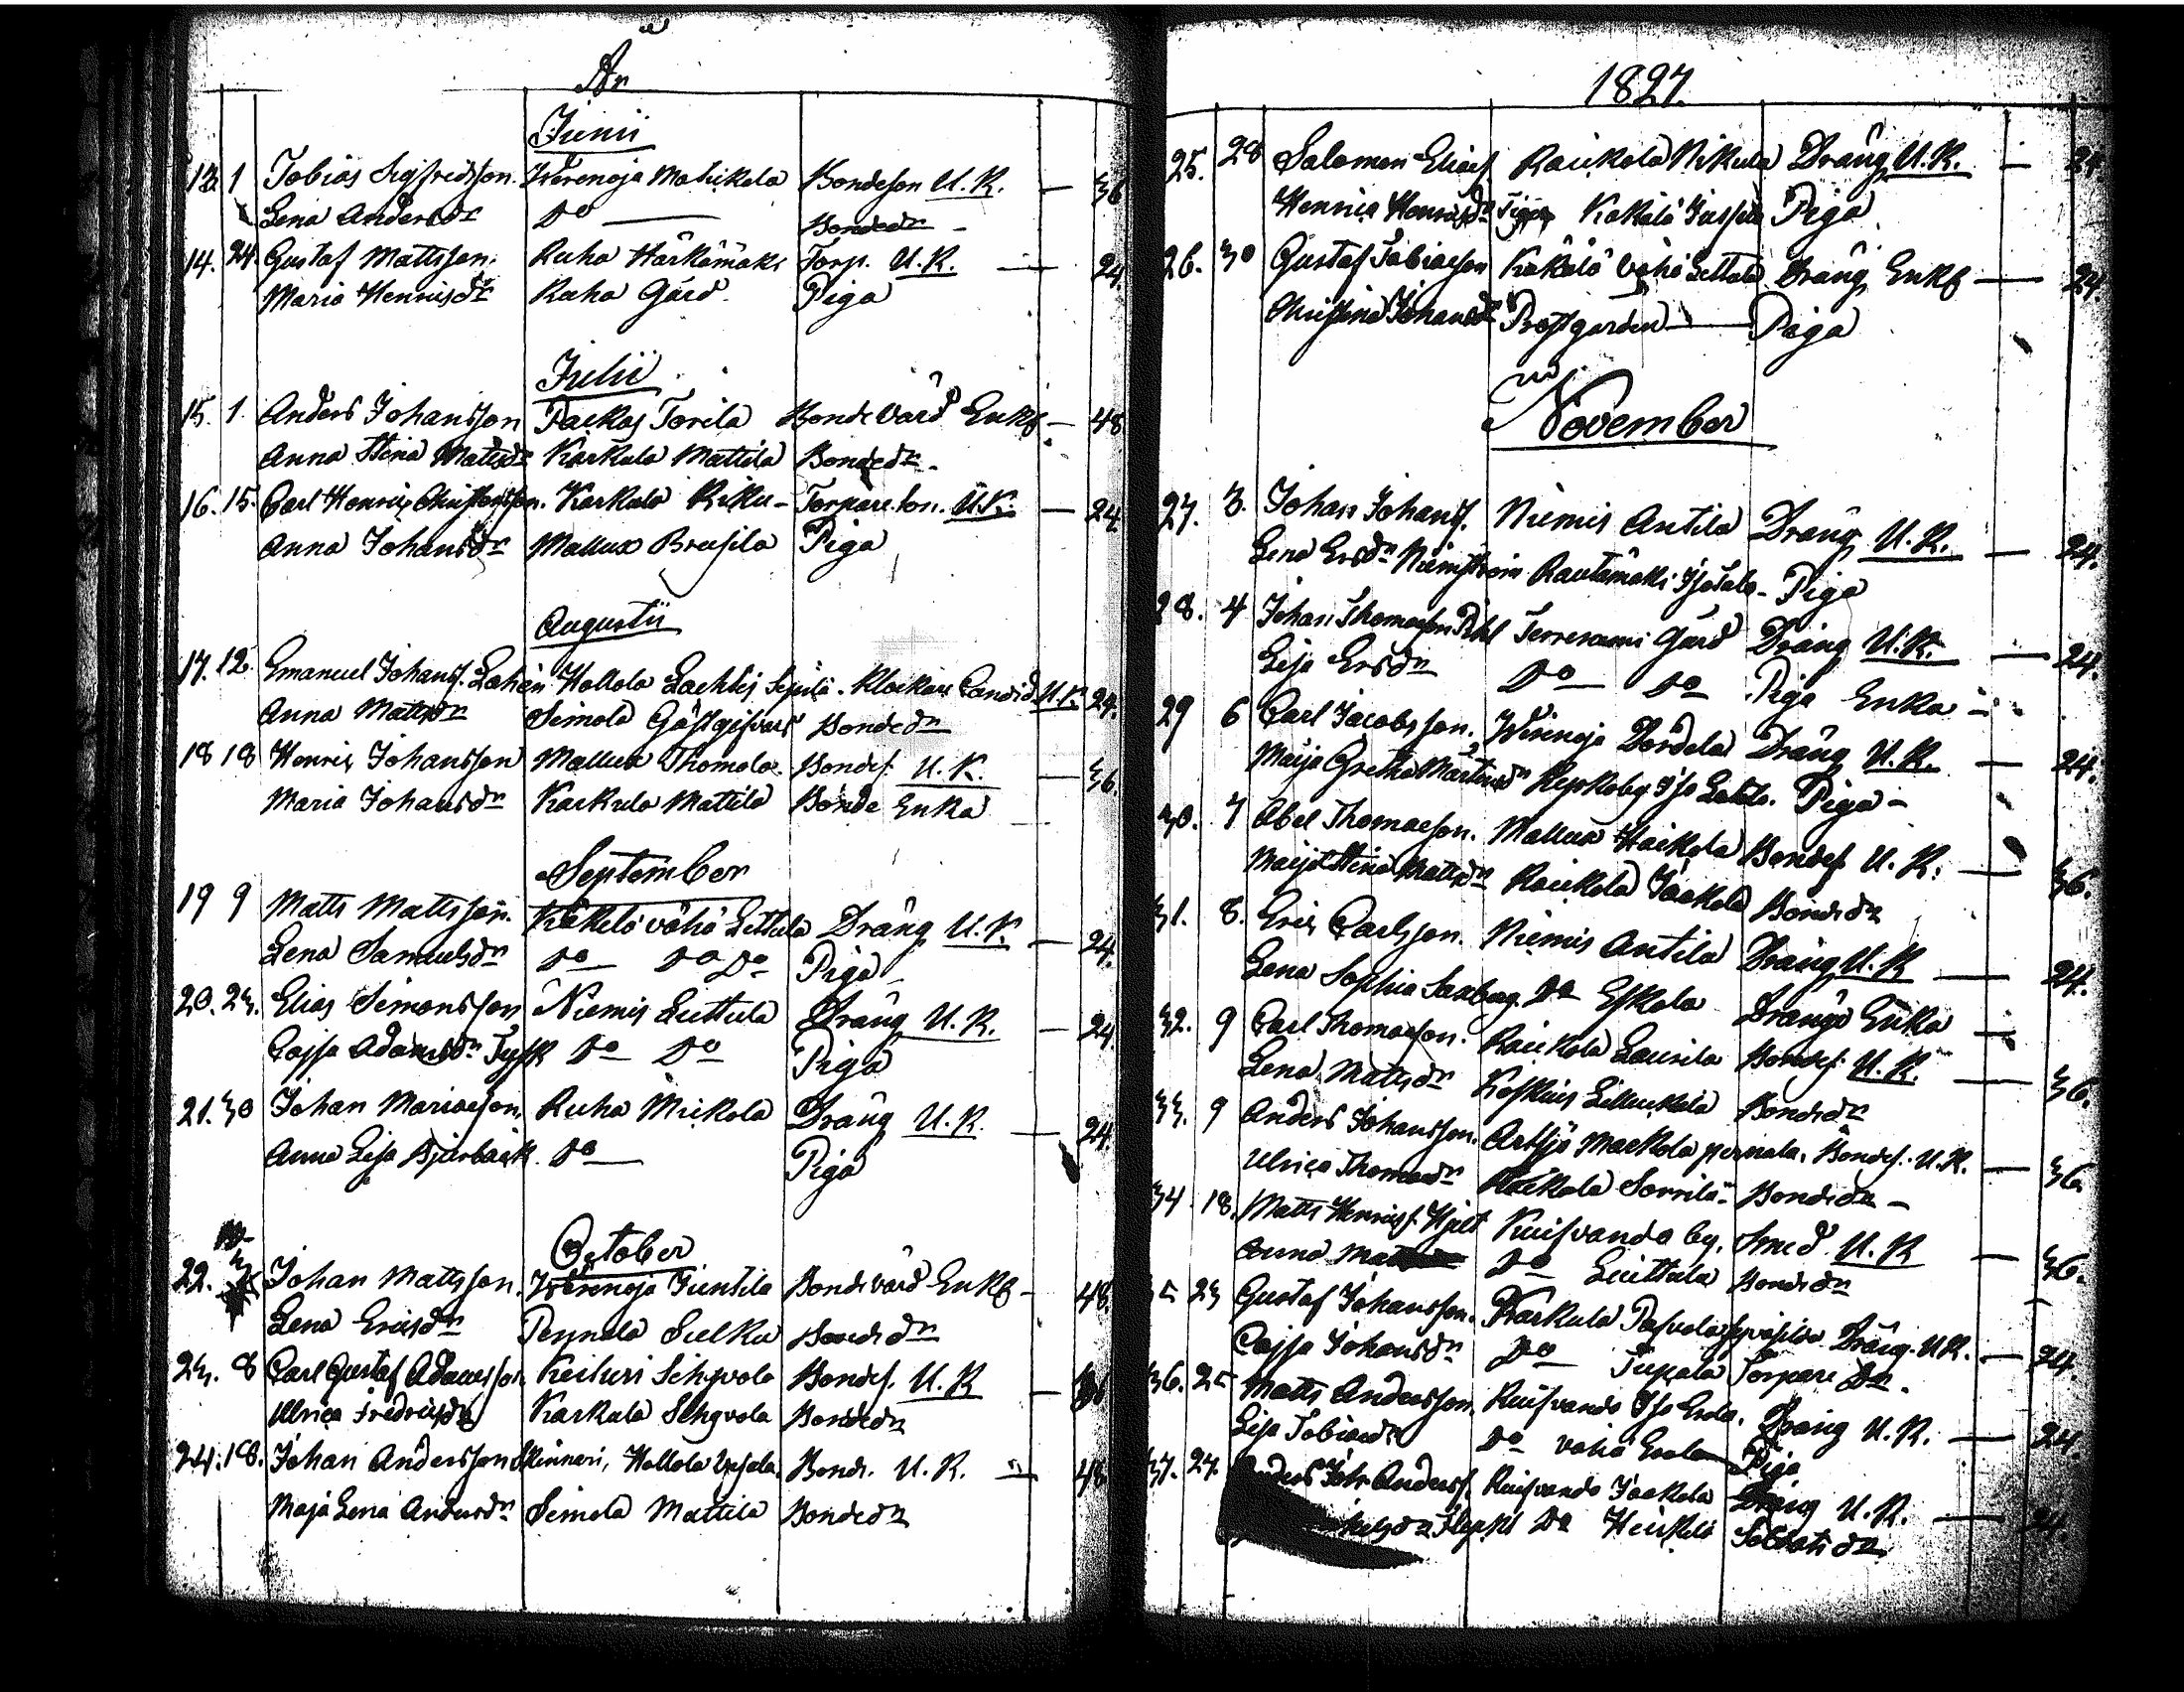 År
Junii
13. 1 Tobias Sigfredsson. Wärenoja Matikala Bondeson U.K. — 36
Lena Andersdr Do — Bondedr
14. 24. Gustaf Mattsson. Ruha Härkämäki Torp. U.K. — 24
Maria Henricsdr Ruha Gård. Piga
Julii
15. 1. Anders Johansson Torila Bonde värd Enkl — 48
Anna Stina Mattsdr Karkula Mattila Bondedr.
16. 15. Carl Henric Karkula Riku - Torpare son. U.K. — 24.
Anna Johansdr Mallux Brusila Piga
Augustii
17. 12. Emanuel Johansf. Hollola Lachtis Seppilä. Klockare Candid. U.K. 24.
Anna Mattsdr Seimola Gästgifvars Bondedr
18 18 Henric Johansson Mallux Thomola. Bondef. U.K. — 36.
Maria Johansdr Karkula Mattila Bonde Enka
September
19 9 Matts Mattsson. Käkelä vähä Luttula Dräng U.K. — 24.
Lena Samuelsdr Do Do Do Piga
20. 23. Elias Simonsson Niemis Luttula Dräng U.K. — 24.
Cajsa Adamsdr Tysk Do Do Piga
21. 30 Johan Mariaeson. Ruha Mickola Dräng U.K. — 24.
Anna Lisa Bjurbäck Do — Piga
October
22. Johan Mattsson. Wärenoja Juntila Bonde värd Enkl — 48.
Lena Ericsdr Pennala Sulku Bondedr
23. 8 Carl Gustaf Adamsson Keituri Sehyvola Bondef. U.K —
Ulrica Fredricsdr Karkula Sehyvola Bondedr
24. 18. Johan Andersson Skinnari, Hollola Bond. U.K. — 48
Maja Lena Andersdr Seimola Mattila Bondedr
1827.
25. 28 Salomon Eliaef. Raukola Nikula Dräng U.K. — 24
Henrica Henricsdr Käkälä Jussila Piga
26. 30 Gustaf Tobiaeson Käkälä vähä Luttula Dräng Enkl — 24.
Christina Johansdr Prostgården — Piga
November
27. 3. Johan Johansf. Niemis Antila Dräng U.K. — 24.
Lena Ersdr Rautamäki Isotalo - Piga
28. 4 Johan Thomaeson Pihl Terreniemi Gård Dräng U.K. — 24.
Lisa Ersdr Do Do Piga Enka —
29 6 Carl Jacobsson. Wärenoja Dräng U.K. — 24.
Maija Gretha Martinsdr Piga —
30. 7 Abel Thomaeson. Mallux Haikola Bondef. U.K. — 36.
Maija Stina Mattsdr Raukola Jaakola Bondedr
31. 8. Eric Carlsson. Niemis Antila Dräng U.K — 24.
Lena Sophia Saxberg. Do Eskola Drängs Enka —
32. 9 Carl Thomaeson. Raukola Laurila Bondef. U.K. — 36.
Lena Mattsdr Koskus Bondedr
33. 9 Anders Johansson. Artsjö Mackola pernala. Bondef. U.K. — 36.
Ulrica Thomaedr Raukola Sorrila - Bondedr —
34 18. Matts Henricsf. Hjelt Kuifvando by. Smed. U.K — 36.
Anna Do Luttula Bondedr
35 23 Gustaf Johansson. Karkula Dräng. U.K. — 24.
Cajsa Johansdr Do Tupala Torpare Dr.
36. 25 Matts Andersson. Kuifvando Iso Erola. Dräng U.K. — 24.
Lisa Tobiaedr Do vähä Erola Piga
37. 27. Anders Joh: Andersf. Kuifvando Jaakola Dräng U.K. — 24.
Do Heickilä Soldats dr.